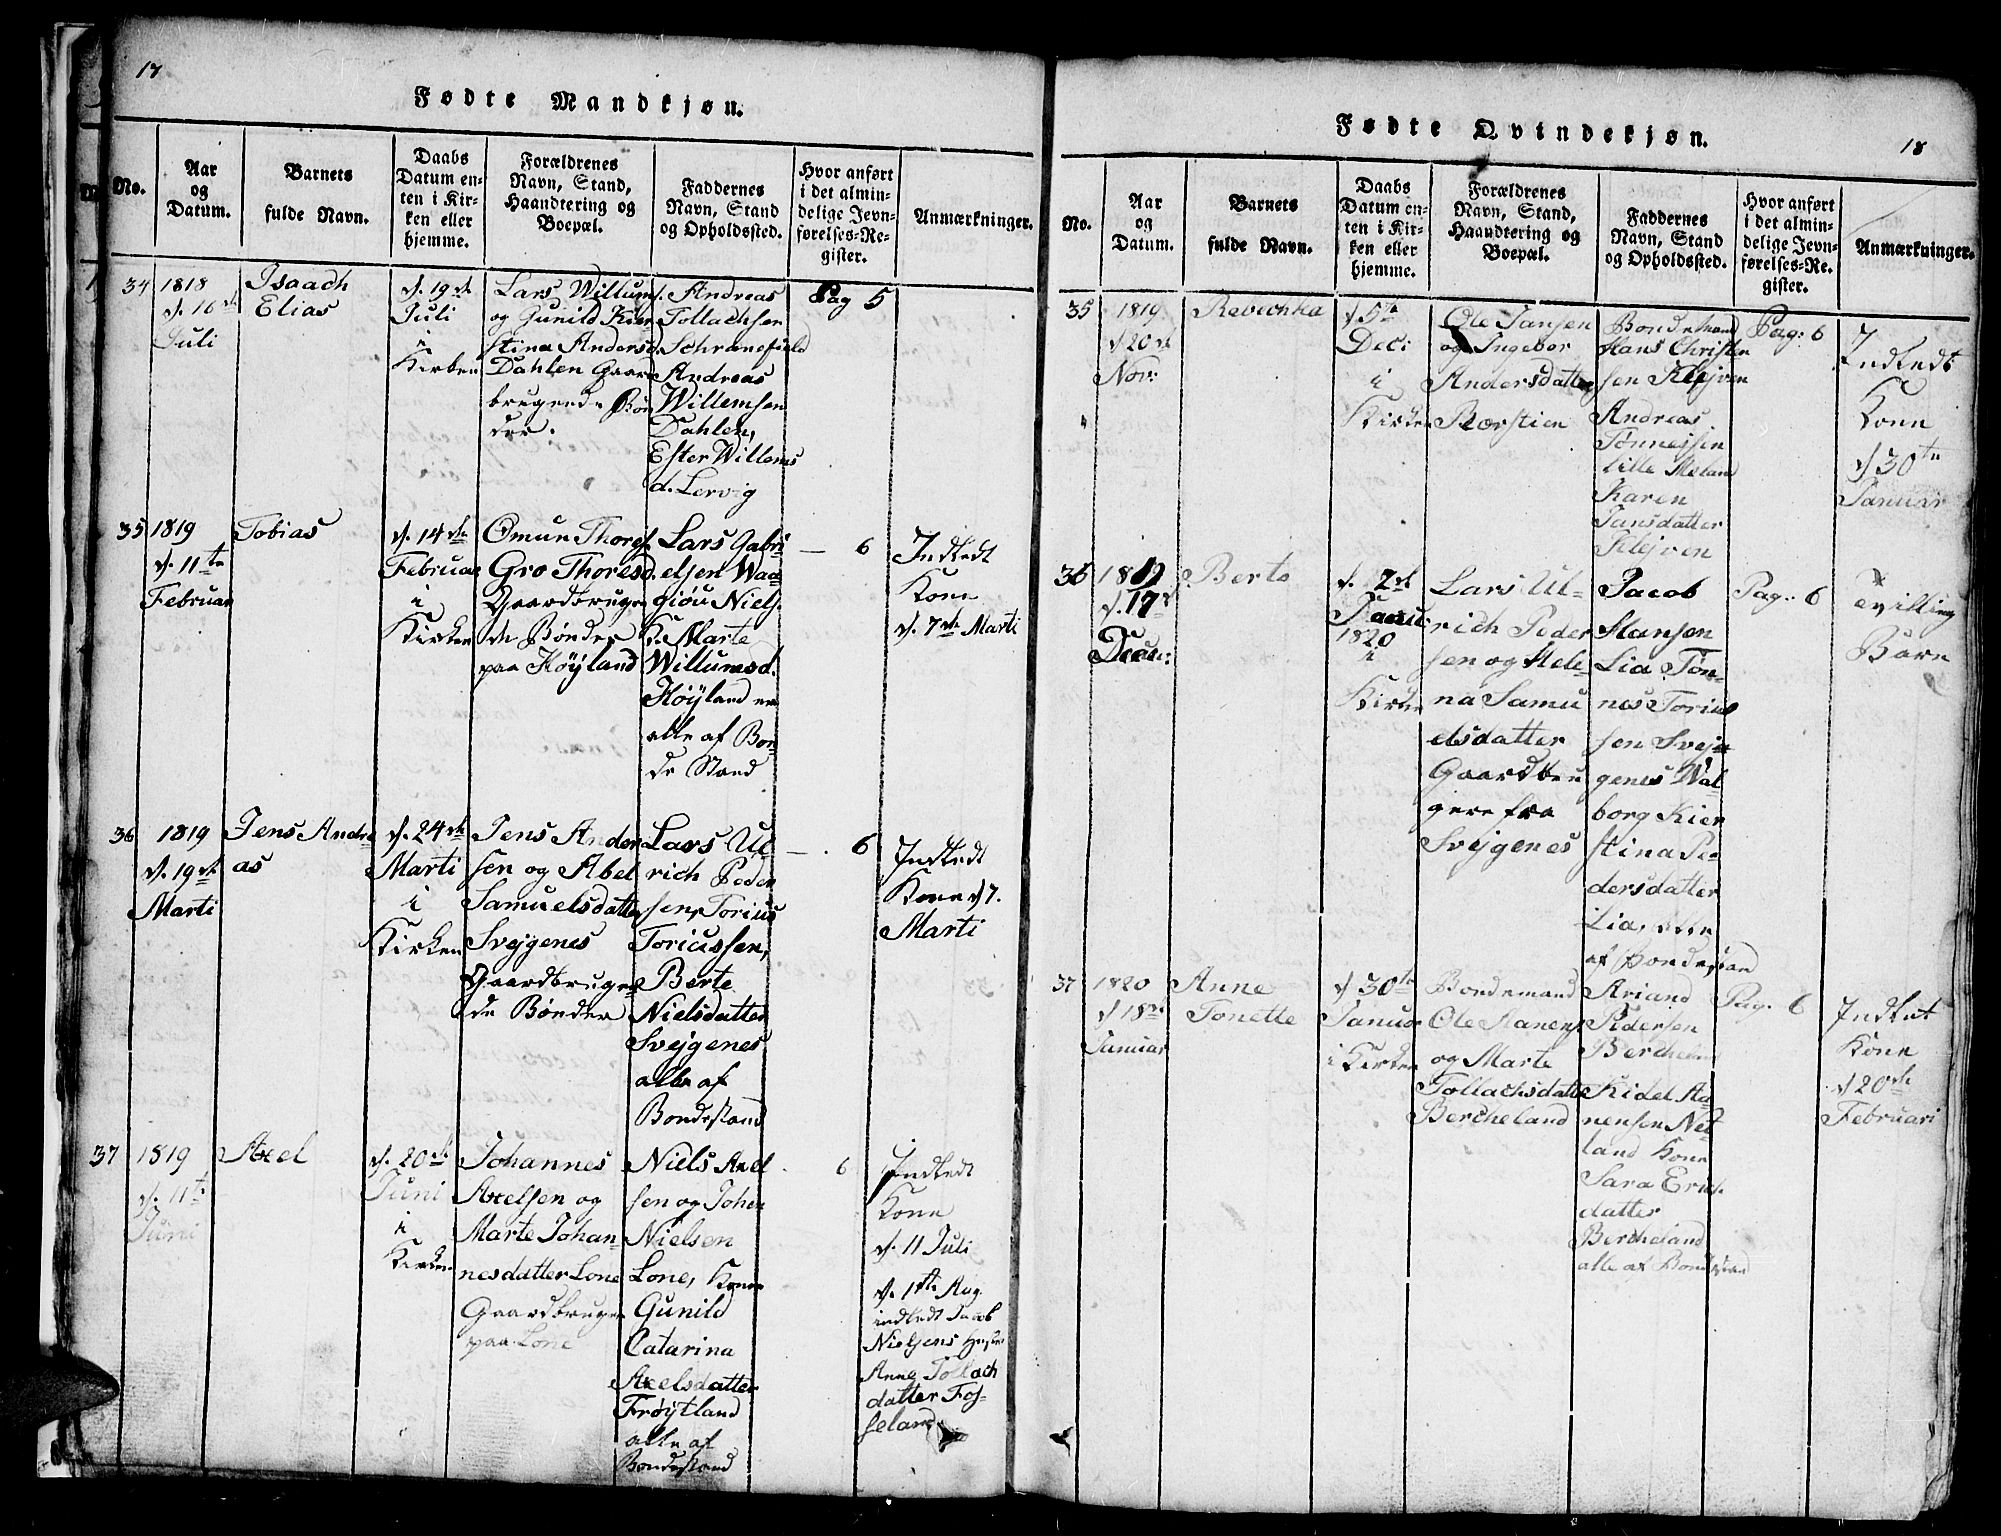 17
Fødte Mandkjøn.
No.
Aar
og
Datum.
Barnets
fulde Navn.
Daabs
Datum en-
ten i Kir-
ken eller
hjemme.
Forældrenes
Navn, Stand,
Haandtering og
Boepæl.
Faddernes
Navn, Stand
og Opholdssted.
Hvor anført
i det almin-
delige Jevn-
førelses-Re-
gister.
Anmærkninger.
34
1818
d. 16de
Juli
Isaach
Elias
d. 19de
Juli
i
Kirken
Lars Willums.
og Gunild Kier
stina Andersd.
Dahlen Gaard
brugende Bøn
der.
Andreas
Tollachsen
Schranefield
Andreas
Willemsen
Dahlen,
Ester Willems
d. Lervig
Pag 5
35
1819
d. 11te
Februar
Tobias
d. 14de
Februar
i
Kirken
Omun Thores.
Gro Thoresd.
Gaardbrugen
de Bønder
paa Høyland
Lars Gabri-
elsen Waa
Giøu Niels.
K. Marte
Willumsd.
Høyland er
alle af Bon-
de Stand
— 6
Indledt
Kone
d. 7de Marti
36
1819
d. 19de
Marti
Jens Andre
as
d. 24de
Marti
i
Kirken
Jens Ander
sen og Abel
Samuelsdatter
Svejgenes
Gaardbrugen
de Bønder
Lars Ul
rich Peder
sen, Torius
Toriussen,
Berte
Nielsdatter
Svejgenes
alle af
Bondestand
— . 6
Indledt
Kone d 7.
Marti
37
1819
d. 11te
Juni
Axel
d. 20de
Juni
i
Kirken
Johannes
Axelsen og
Marte Johan-
nesdatter Lone
Gaardbruger
paa Lone
Niels Axel
sen og Johan
Nielsen
Lone, Kone
Gunild
Catarina
Axelsdatter
Frøytland
alle af
Bondestand
6
Indledt
Kone
d. 11 Juli
d. 1ste Aug.
indledt Jacob
Nielsens
Anne Tollach
datter Fos-
seland
18
Fødte Qvindekjøn.
No.
Aar
og
Datum.
Barnets
fulde Navn.
Daabs
Datum en-
ten i Kir-
ken eller
hjemme.
Forældrenes
Navn, Stand,
Haandtering og
Boepæl.
Faddernes
Navn, Stand
og Opholdssted.
Hvor anført
i det almin-
delige Jevn-
førelses-Re-
gister.
Anmærkninger.
35
1819
d 20de
Nov:
Rebechka
d 5te
Deci
i
Kirken
Ole Jansen
og Ingebor
Andersdatter
Rørstien
Bondemand
Hans Christen
sen Klejven
Andreas
Tønnessen
lille Meland
Karen
Jansdatter
Klejven
Pag: 6
Indledt
Kone
d 30te
Januar
36
1819
d. 17de
Decbr:
Berte
d. 2de
Januar
1820
i
Kirken
Lars Ul-
rich Peder
sen og Hele
na Samu
elsdatter
Gaardbru
gere fra
Svejgenes
Jacob
Hansen
Lia Tøn-
nes Torius
sen Svej-
genes Wal-
borg Kier
stina Pe-
dersdatter
Lia, alle
af Bondestan
Pag: 6
Tvilling
Børn
37
1820
d 18de
Januar
Anne
Tonette
d 30te
Januar
i Kirken
Bondemand
Ole Hanens.
og Marte
Tollachsdatter
Bercheland
Ariand
Pedersen
Bercheland
Kidel Ha-
nensen Net-
land Kone
Sara Erics
datter
Bercheland
alle af Bondestan
Pag. 6
Indledt
Kone
d 20de
Februari